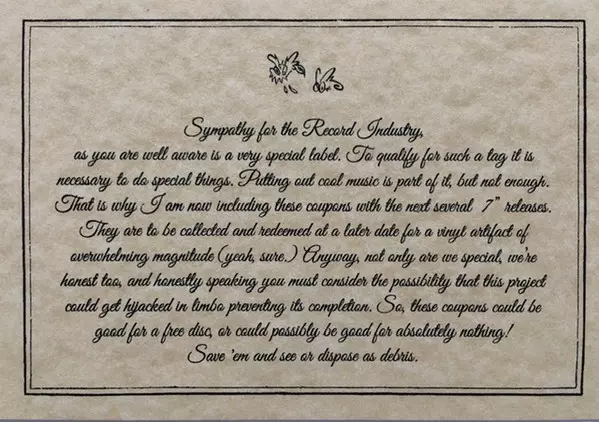 Sympathy for the Record Industry,
as you are well aware is a very special label. To qualify for such a tag it is
necessary to do special things. Putting out cool music is part of it, but not enough.
That is why I am now including these coupons with the next several 7" releases.
They are to be collected and redeemed at a later date for a vinyl artifact of
overwhelming magnitude (yeah, sure.) Anyway, not only are we special, we're
honest too, and honestly speaking you must consider the possibility that this project
could get hijacked in limbo preventing its completion. So, these coupons could be
good for a free disc, or could possibly be good for absolutely nothing!
Save 'em and see or dispose as debris.